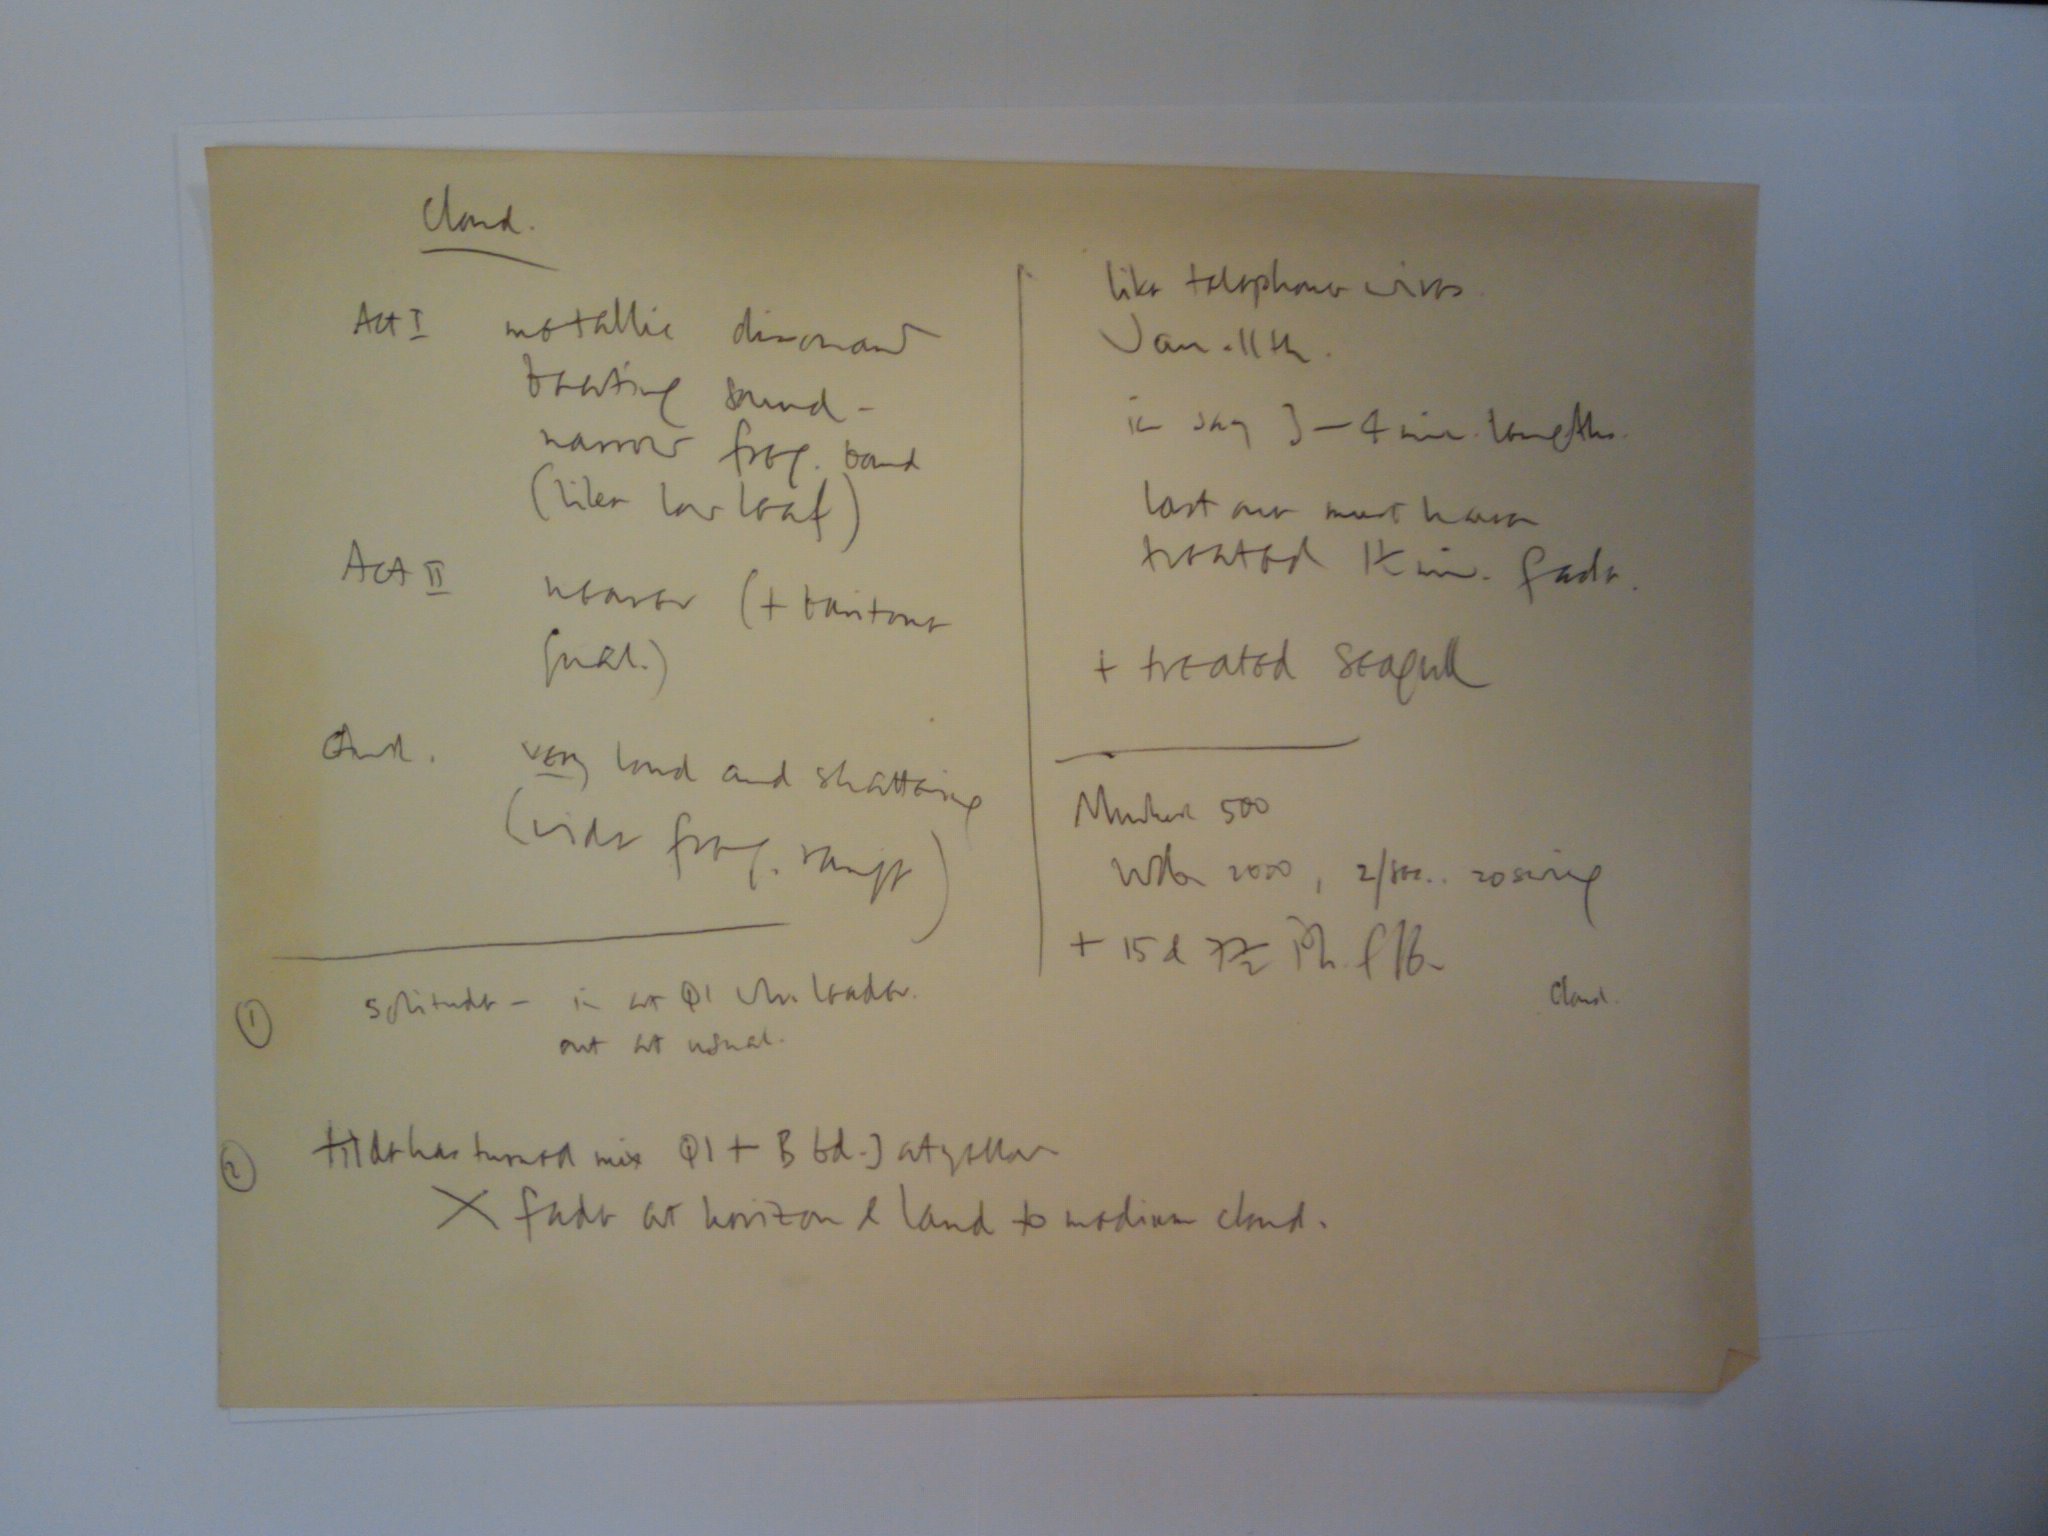 Cloud.
Act I metallic dissonant
beating sound -
narrow freq. band
(like low leaf)
Act II nearer (+ baritone
qual.)
very loud and shattering
(wide freq. range)
like telephone wires.
Jan. 11th.
in say 3-4 min. lengths.
last one must have
treated 1½ min. fade.
+ treated seagull
500
2000, 2/sec..
+ 15 d
Cloud.
① solitude - in at Q1 leader.
out at usual.
② tilda has turned mix Q1 + B bd.] at yellow
X fade at horizon & land to medium cloud.